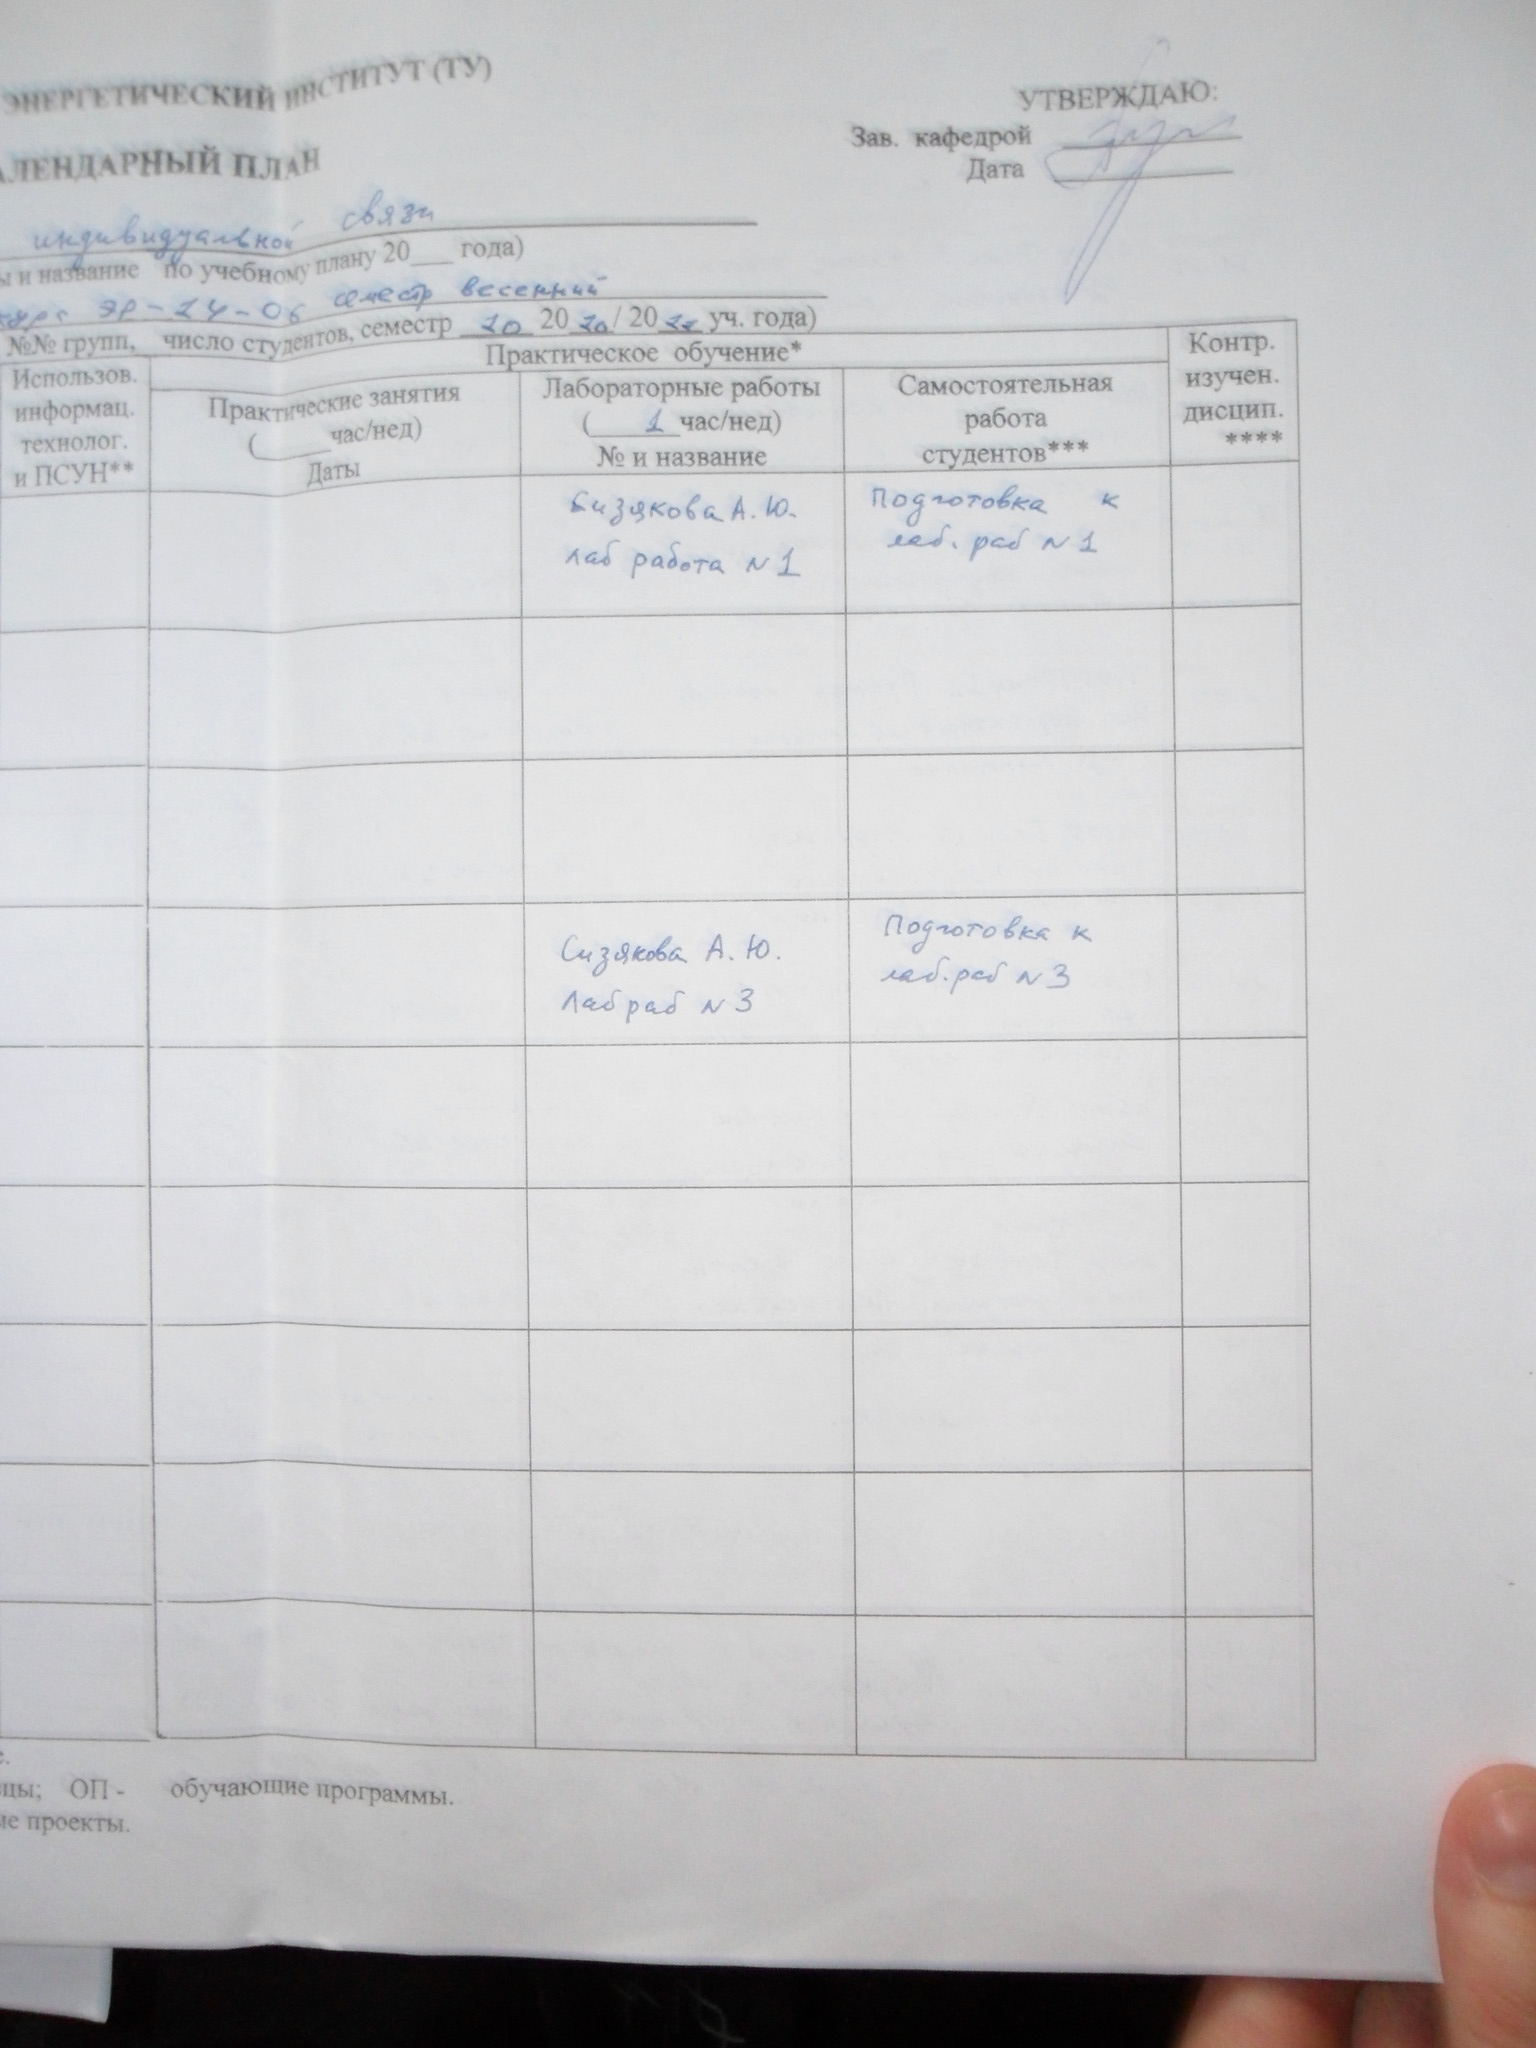 ЭНЕРГЕТИЧЕСКИЙ ИНСТИТУТ (ТУ)
УТВЕРЖДАЮ:
Зав. кафедрой
АЛЕНДАРНЫЙ ПЛАН
Дата
индивидуальной связи
ы и название по учебному плану 20___ года)
курс ЭР-24-06 семестр весенний
№№ групп, число студентов, семестр 20 / 20 уч. года)
Практическое обучение*
Контр. изучен. дисцип. ****
Использов. информац. технолог. и ПСУН**
Практические занятия
(______час/нед)
Даты
Лабораторные работы
(____1_час/нед)
№ и название
Самостоятельная
работа
студентов***
Сизякова А.Ю.
Лаб работа N1
Подготовка к
лаб. раб N1
Сизякова А.Ю.
Лаб раб N3
Подготовка к
лаб. раб N3
е.
цы; ОП - обучающие программы.
ые проекты.